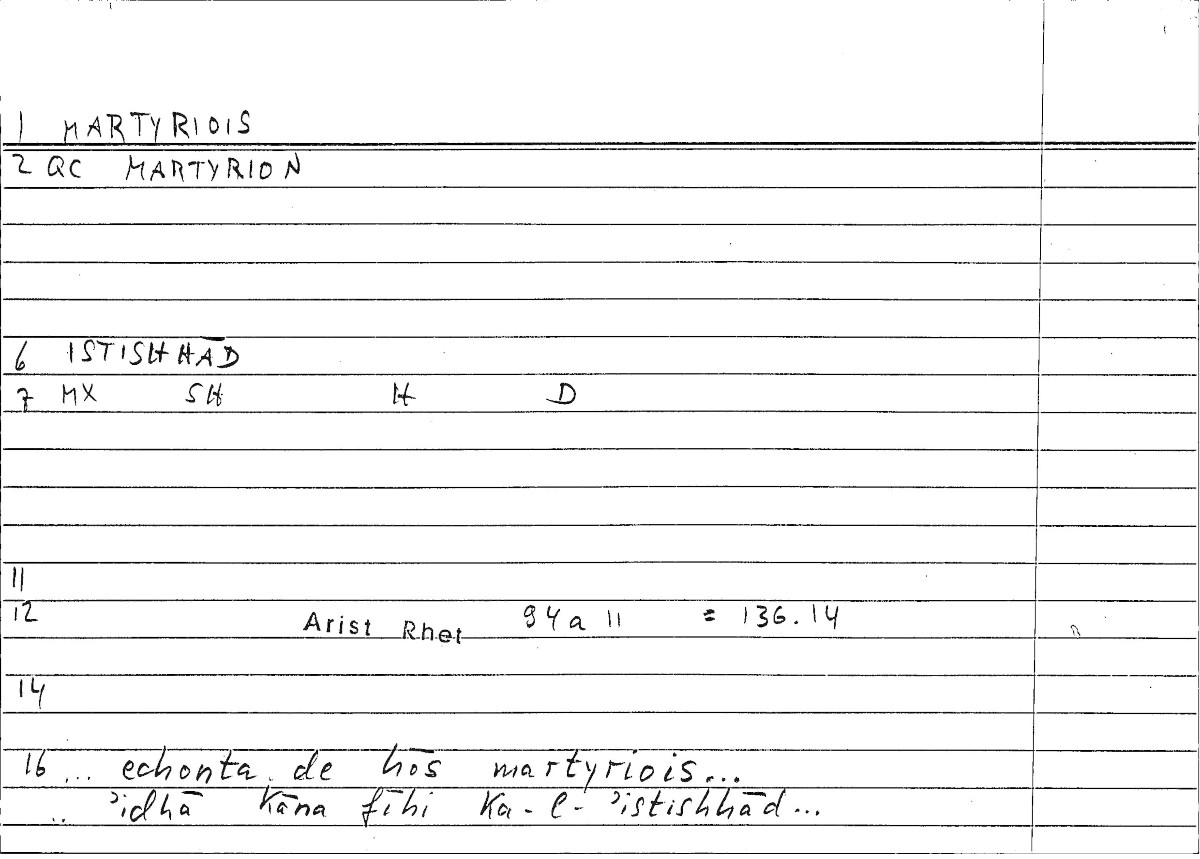 1 MARTYRIOIS
2 QC MARTYRION
6 ISTISHHĀD
7 MX SH H D
11
12 Arist Rhet 94a 11 = 136.14
14
16 ... echonta de hōs martyriois...
.. ʾidhā kāna fīhi ka-l-ʾistishhād...